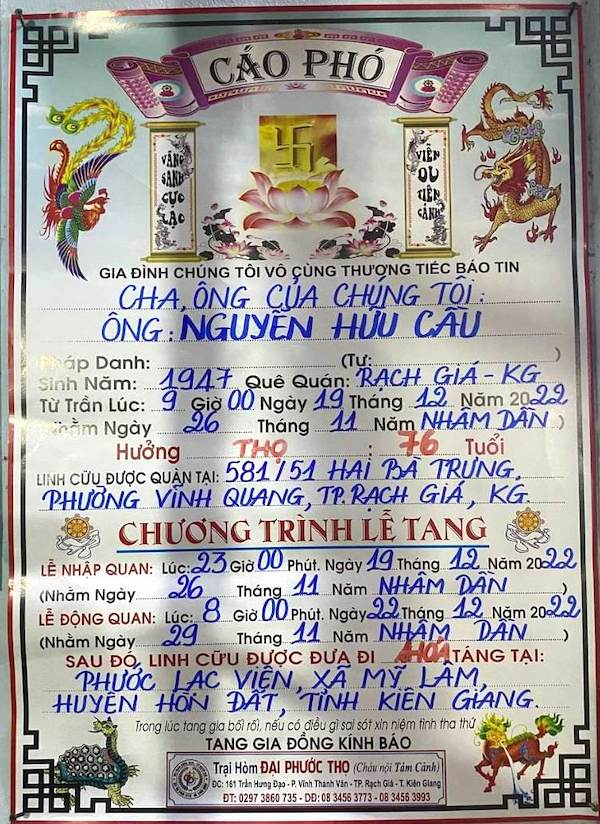 CÁO PHÓ
VÃNG SANH CỰC LẠC
VIỄN DU TIÊN CẢNH
GIA ĐÌNH CHÚNG TÔI VÔ CÙNG THƯƠNG TIẾC BÁO TIN
CHA, ÔNG CỦA CHÚNG TÔI:
ÔNG: NGUYỄN HỮU CẦU
Pháp Danh: (Tự: )
Sinh Năm: 1947 Quê Quán: RẠCH GIÁ - KG
Từ Trần Lúc: 9 Giờ 00 Ngày 19 Tháng 12 Năm 2022
(Nhằm Ngày 26 Tháng 11 Năm NHÂM DẦN)
Hưởng THỌ : 76 Tuổi
LINH CỮU ĐƯỢC QUÀN TẠI: 581/51 HAI BÀ TRƯNG,
PHƯỜNG VĨNH QUANG, TP. RẠCH GIÁ, KG.
CHƯƠNG TRÌNH LỄ TANG
LỄ NHẬP QUAN: Lúc: 23 Giờ 00 Phút. Ngày 19 Tháng 12 Năm 2022
(Nhằm Ngày 26 Tháng 11 Năm NHÂM DẦN)
LỄ ĐỘNG QUAN: Lúc: 8 Giờ 00 Phút. Ngày 22 Tháng 12 Năm 2022
(Nhằm Ngày 29 Tháng 11 Năm NHÂM DẦN)
SAU ĐÓ, LINH CỮU ĐƯỢC ĐƯA ĐI HỎA TÁNG TẠI:
PHƯỚC LẠC VIÊN, XÃ MỸ LÂM,
HUYỆN HÒN ĐẤT, TỈNH KIÊN GIANG.
Trong lúc tang gia bối rối, nếu có điều gì sai sót xin niệm tình tha thứ
TANG GIA ĐỒNG KÍNH BÁO
Trại Hòm ĐẠI PHƯỚC THỌ (Cháu nội Tám Cảnh)
ĐC: 161 Trần Hưng Đạo - P. Vĩnh Thanh Vân - TP. Rạch Giá - T. Kiên Giang
ĐT: 0297 3860 735 - DĐ: 08 3456 3773 - 08 3456 3993